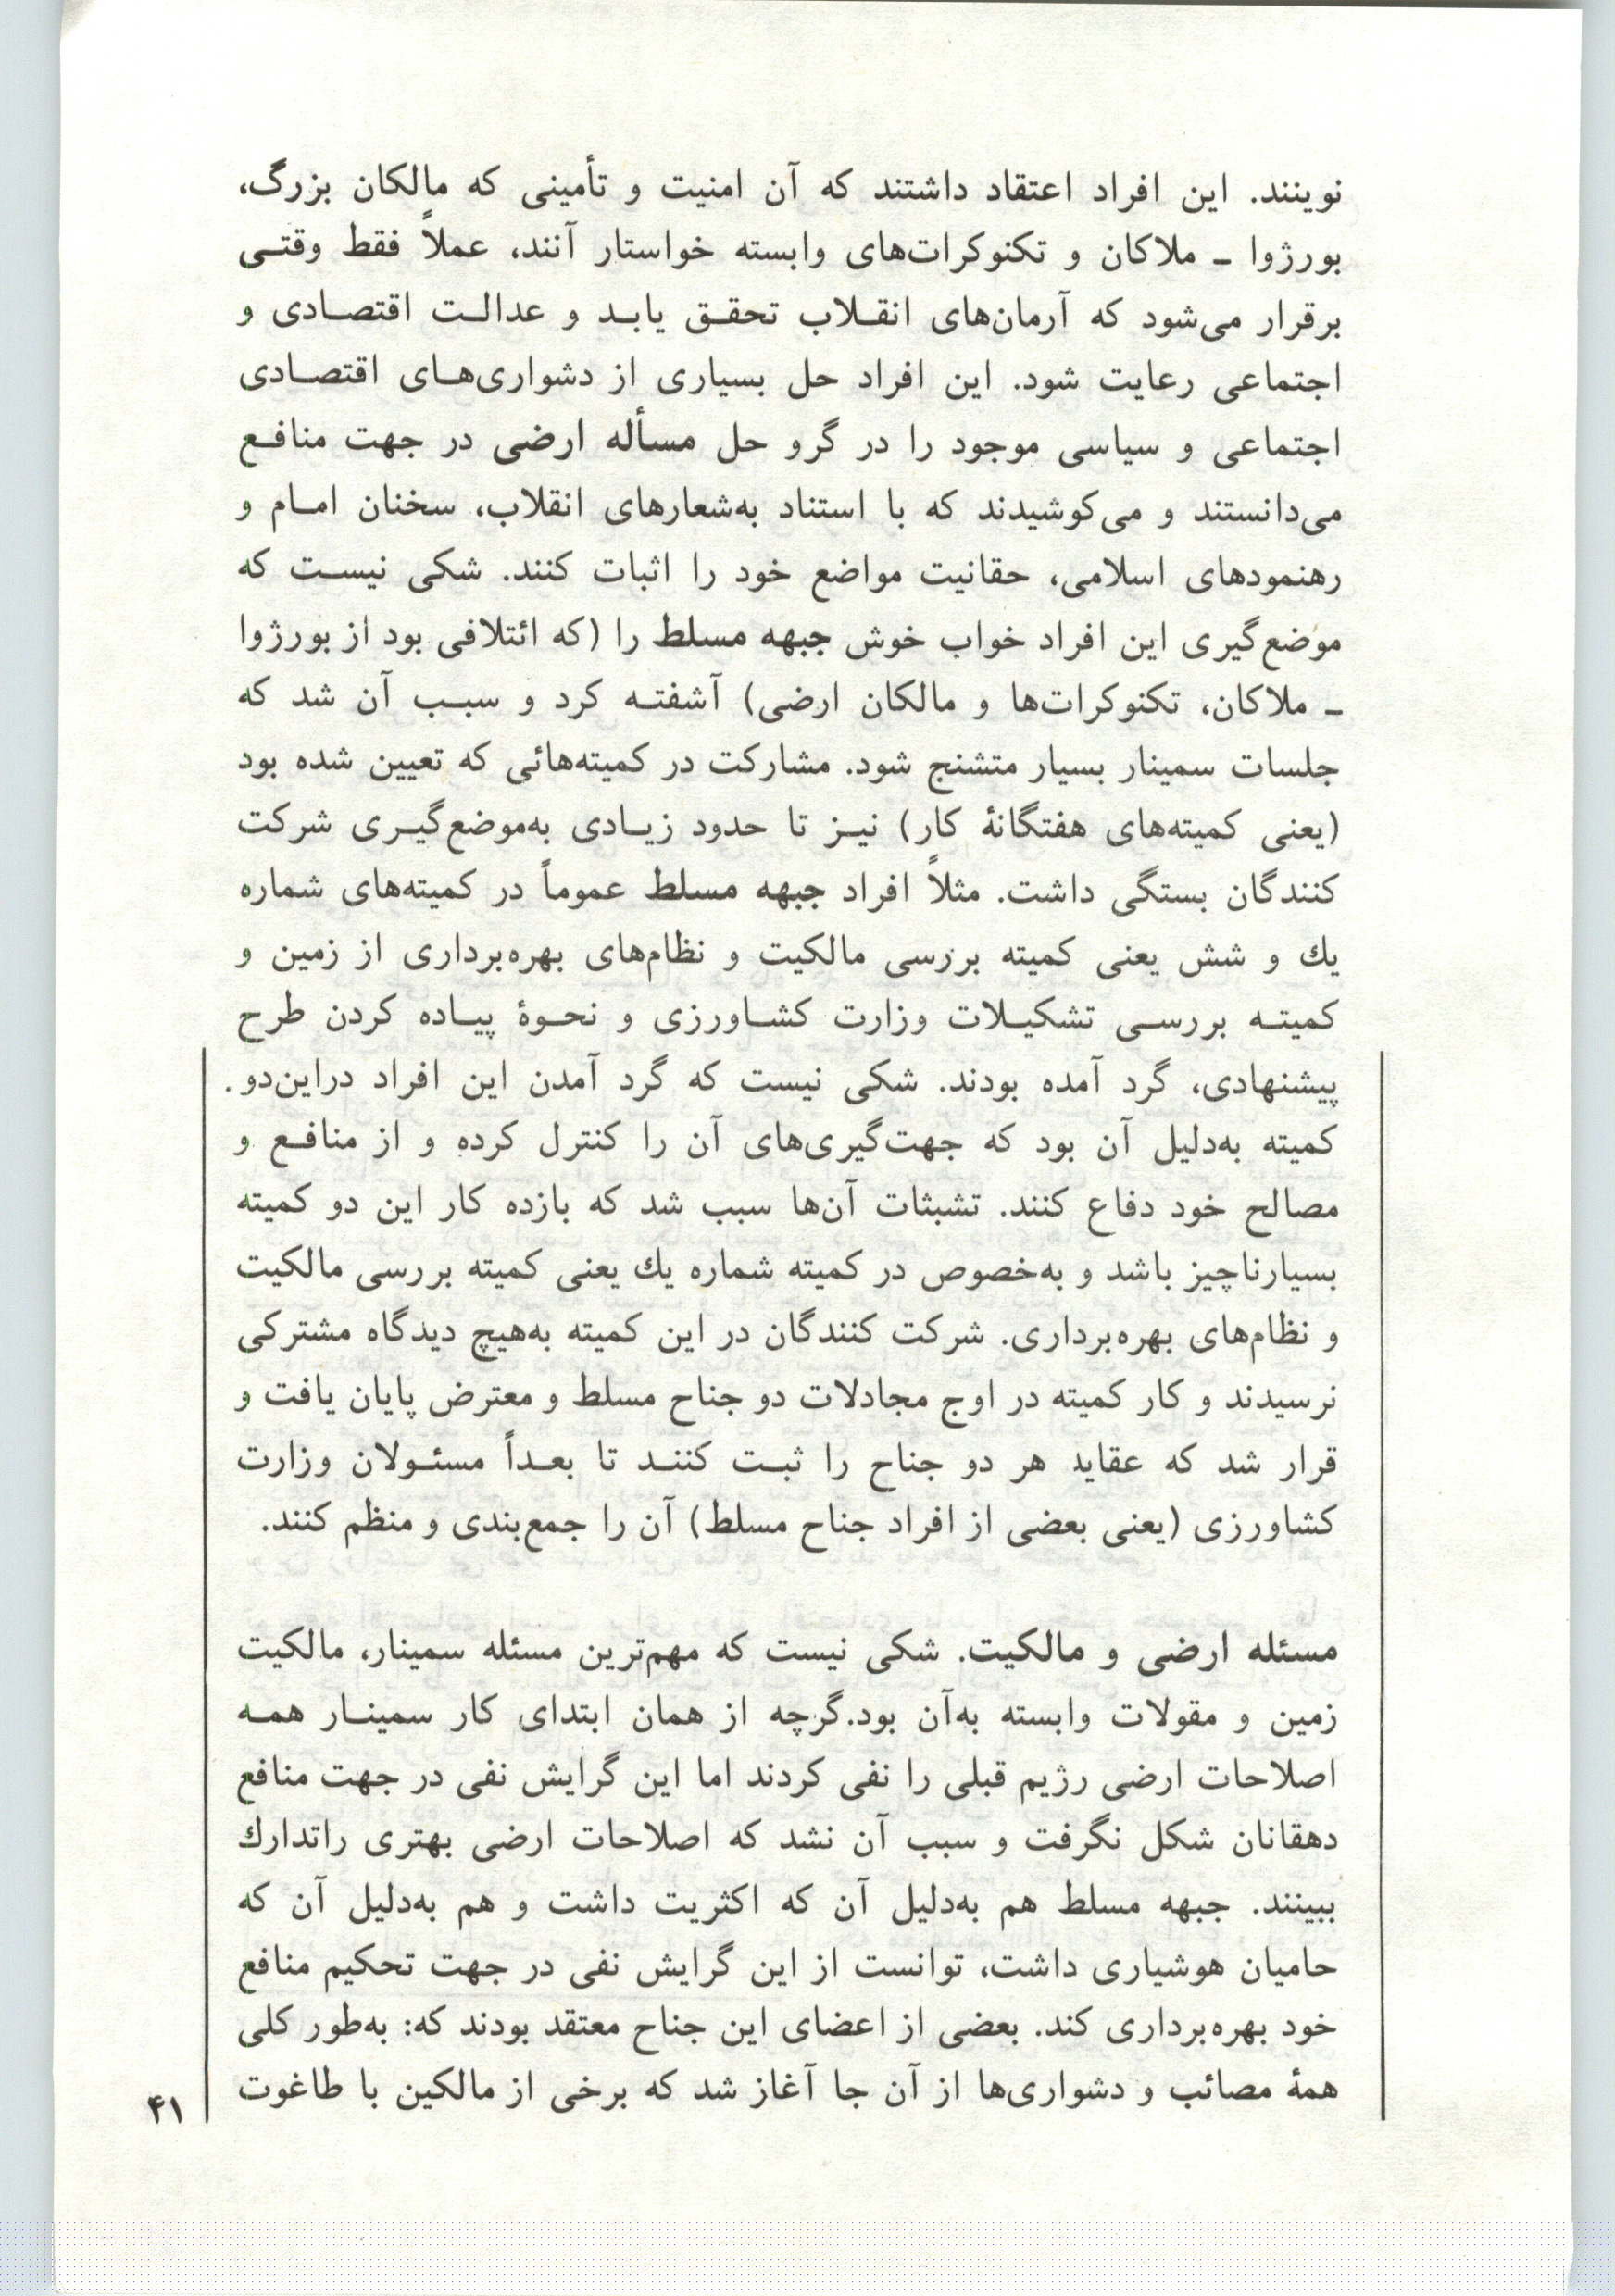 نوینند. این افراد اعتقاد داشتند که آن امنیت و تأمینی که مالکان بزرگ،
بورژوا ـ ملاکان و تکنوکرات‌های وابسته خواستار آنند، عملاً فقط وقتی
برقرار می‌شود که آرمان‌های انقلاب تحقق یابد و عدالت اقتصادی و
اجتماعی رعایت شود. این افراد حل بسیاری از دشواری‌های اقتصادی
اجتماعی و سیاسی موجود را در گرو حل مسأله ارضی در جهت منافع
می‌دانستند و می‌کوشیدند که با استناد به‌شعارهای انقلاب، سخنان امام و
رهنمودهای اسلامی، حقانیت مواضع خود را اثبات کنند. شکی نیست که
موضع‌گیری این افراد خواب خوش جبهه مسلط را (که ائتلافی بود از بورژوا
ـ ملاکان، تکنوکرات‌ها و مالکان ارضی) آشفته کرد و سبب آن شد که
جلسات سمینار بسیار متشنج شود. مشارکت در کمیته‌هائی که تعیین شده بود
(یعنی کمیته‌های هفتگانهٔ کار) نیز تا حدود زیادی به‌موضع‌گیری شرکت
کنندگان بستگی داشت. مثلاً افراد جبهه مسلط عموماً در کمیته‌های شماره
یك و شش یعنی کمیته بررسی مالکیت و نظام‌های بهره‌برداری از زمین و
کمیته بررسی تشکیلات وزارت کشاورزی و نحوهٔ پیاده کردن طرح
پیشنهادی، گرد آمده بودند. شکی نیست که گرد آمدن این افراد دراین‌دو
کمیته به‌دلیل آن بود که جهت‌گیری‌های آن را کنترل کرده و از منافع و
مصالح خود دفاع کنند. تشبثات آن‌ها سبب شد که بازده کار این دو کمیته
بسیارناچیز باشد و به‌خصوص در کمیته شماره یك یعنی کمیته بررسی مالکیت
و نظام‌های بهره‌برداری. شرکت کنندگان در این کمیته به‌هیچ دیدگاه مشترکی
نرسیدند و کار کمیته در اوج مجادلات دو جناح مسلط و معترض پایان یافت و
قرار شد که عقاید هر دو جناح را ثبت کنند تا بعداً مسئولان وزارت
کشاورزی (یعنی بعضی از افراد جناح مسلط) آن را جمع‌بندی و منظم کنند.
مسئله ارضی و مالکیت. شکی نیست که مهم‌ترین مسئله سمینار، مالکیت
زمین و مقولات وابسته به‌آن بود.گرچه از همان ابتدای کار سمینار همه
اصلاحات ارضی رژیم قبلی را نفی کردند اما این گرایش نفی در جهت منافع
دهقانان شکل نگرفت و سبب آن نشد که اصلاحات ارضی بهتری راتدارك
ببینند. جبهه مسلط هم به‌دلیل آن که اکثریت داشت و هم به‌دلیل آن که
حامیان هوشیاری داشت، توانست از این گرایش نفی در جهت تحکیم منافع
خود بهره‌برداری کند. بعضی از اعضای این جناح معتقد بودند که: به‌طور کلی
همهٔ مصائب و دشواری‌ها از آن جا آغاز شد که برخی از مالکین با طاغوت
۴۱